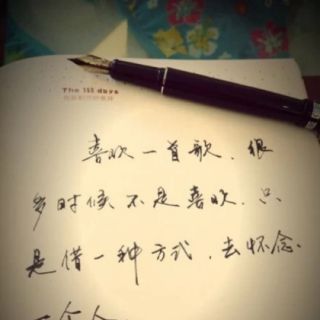 The 365 days
喜欢一首歌，很
多时候不是喜欢，只
是借一种方式，去怀念
一个人